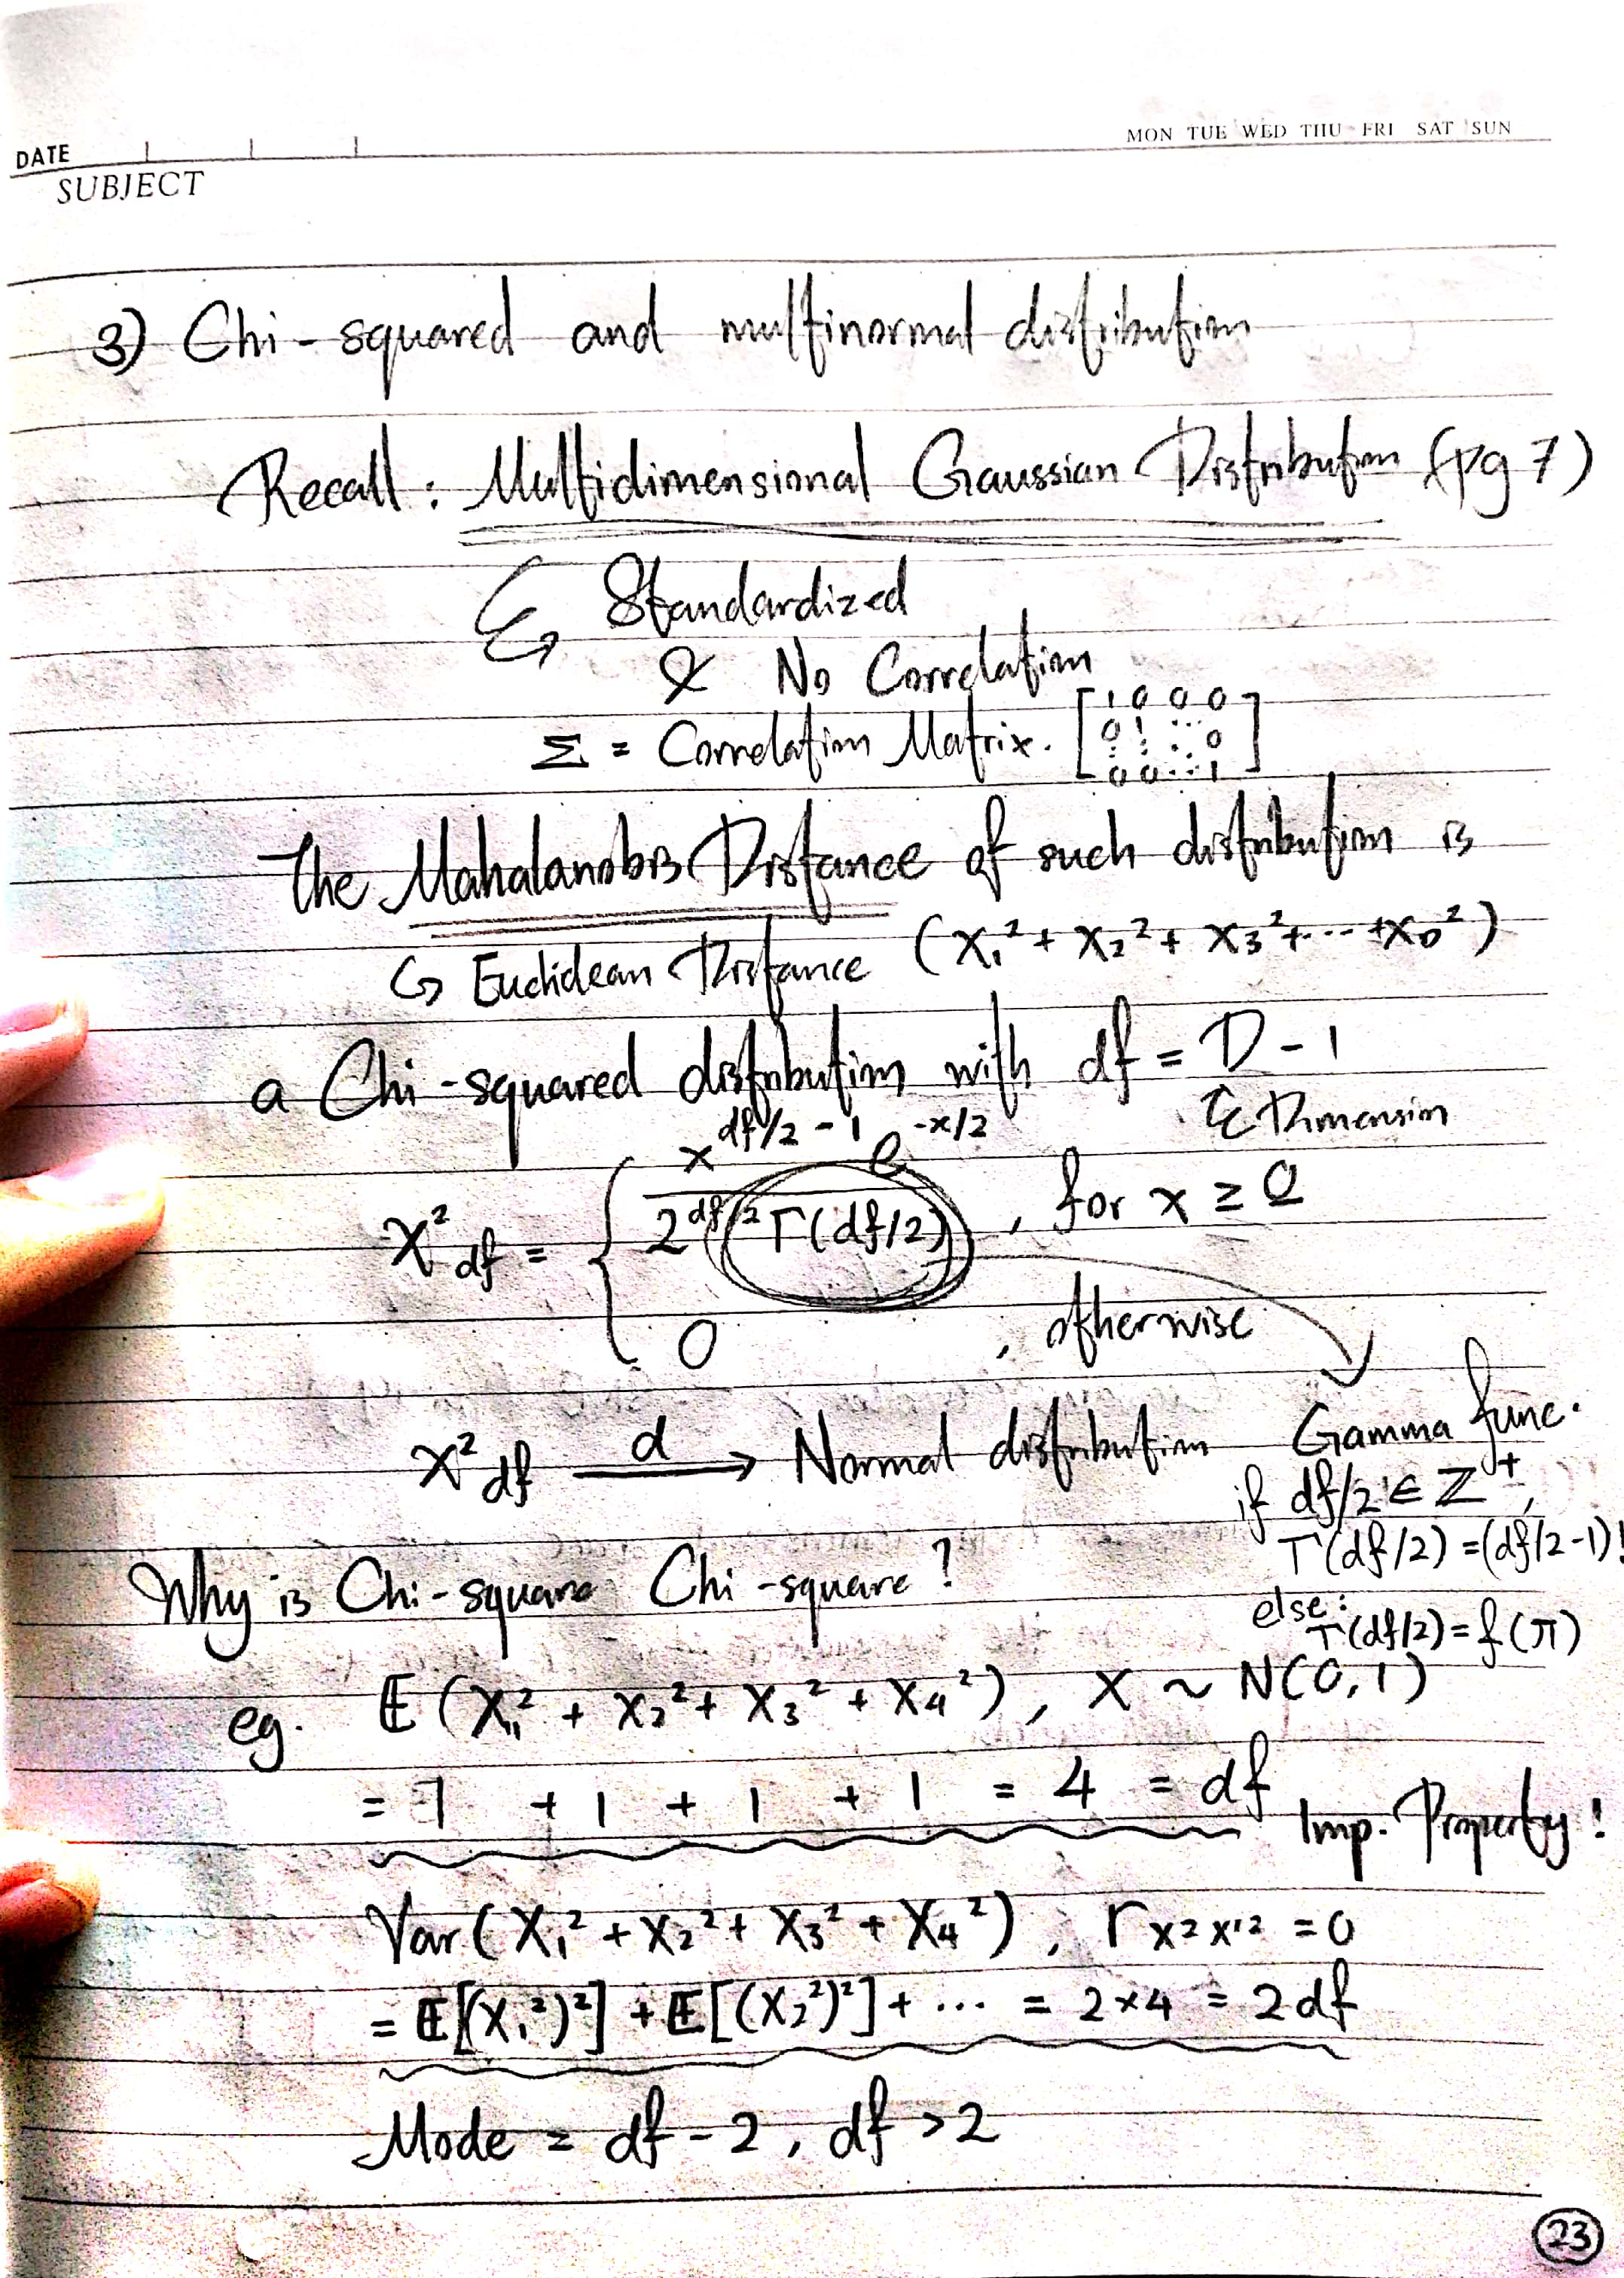 MON TUE WED THU FRI SAT SUN
DATE
SUBJECT
3) Chi-squared and multinormal distribution
Recall: Multidimensional Gaussian Distribution (pg 7)
↪ Standardized
& No Correlation
Σ = Correlation Matrix. [1 0 0 0; 0 1 ⋱ 0; 0 0 ... 1]
The Mahalanobis Distance of such distribution is
↪ Euclidean Distance (X₁² + X₂² + X₃² + ... + X_D²)
a Chi-squared distribution with df = D - 1
↪ Dimension
X²_df = { x^(df/2 - 1) e^(-x/2) / 2^(df/2) Γ(df/2) , for x ≥ 0
0 , otherwise
X²_df —d→ Normal distribution
Gamma func.
if df/2 ∈ Z⁺,
Γ(df/2) = (df/2-1)!
else:
Γ(df/2) = f(π)
Why is Chi-square Chi-square?
eg. E(X₁² + X₂² + X₃² + X₄²), X ~ N(0,1)
= 1 + 1 + 1 + 1 = 4 = df
Imp. Property!
Var(X₁² + X₂² + X₃² + X₄²), r_x²x'² = 0
= E[(X₁²)²] + E[(X₂²)²] + ... = 2×4 = 2df
Mode = df - 2, df > 2
23